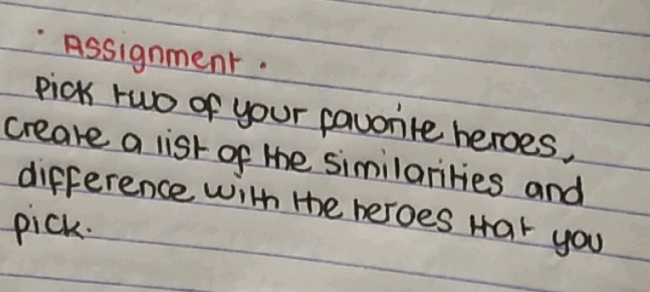 · Assignment ·
Pick two of your favorite heroes,
create a list of the similarities and
difference with the heroes that you
pick.